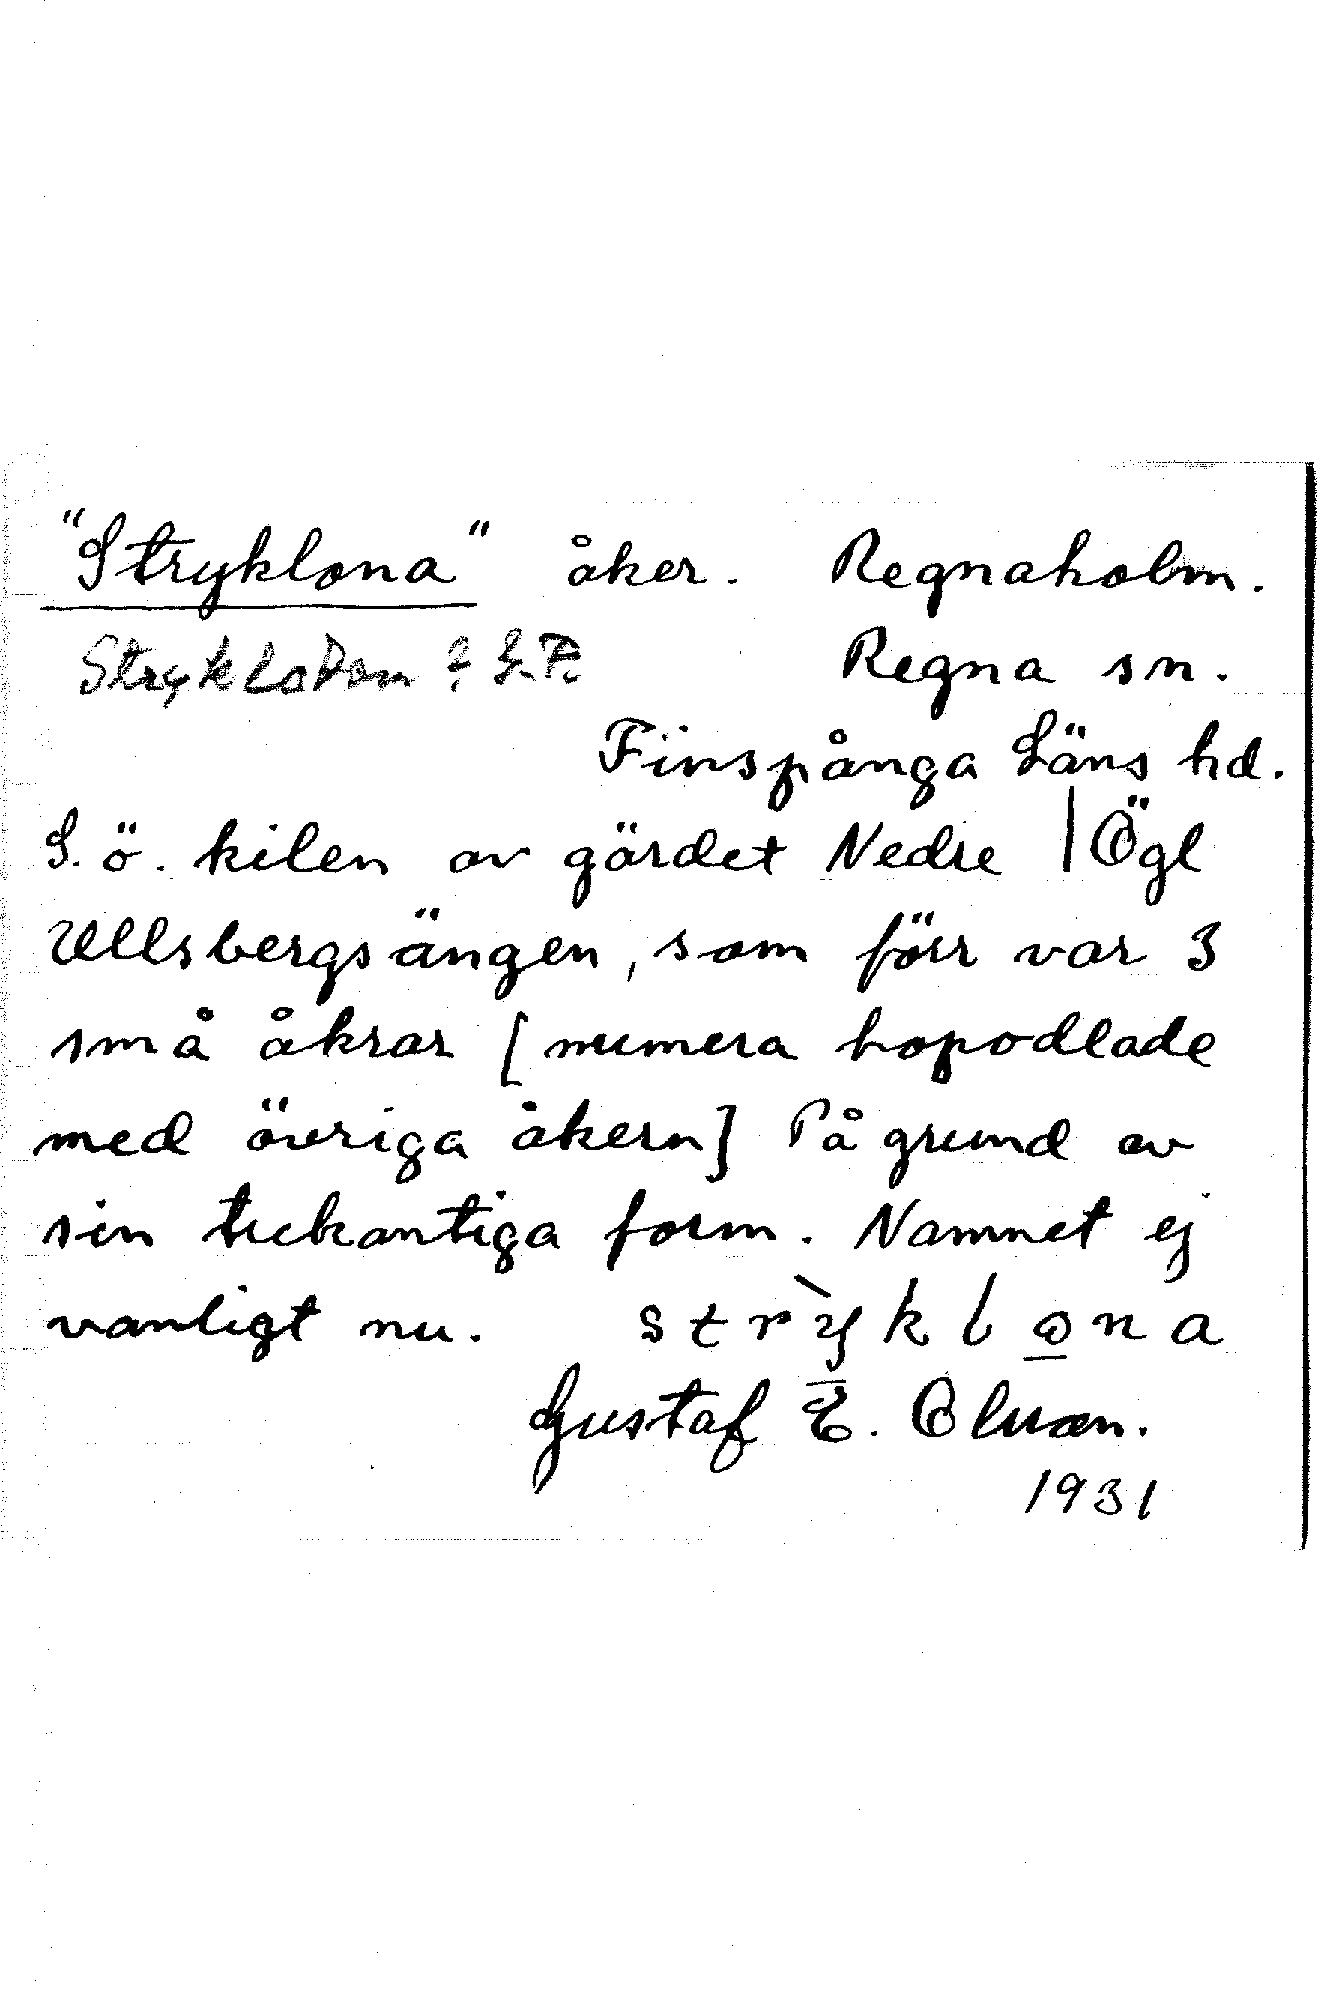 "Stryklona" åker. Regnaholm.
Regna sn.
Finspånga Läns hd.
S.ö. kilen av gärdet Nedre | Ögl
Ullsbergsängen, som förr var 3
små åkrar [numera hopodlade
med övriga åkern] På grund av
sin trekantiga form. Namnet ej
vanligt nu. strỳ̠klo̠na
Gustaf E.
1931